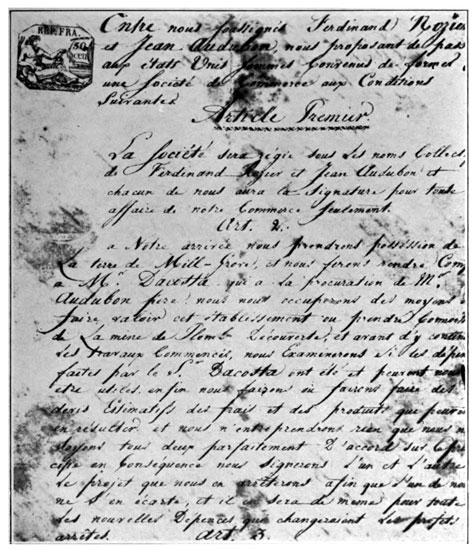 REP. FRA.
50
cen
Entre nous soussignés Ferdinand Rozier
et Jean Audubon, nous proposant de pass
aux états Unis sommes Convenus de former
une Société de Commerce aux Conditions
Suivantes
Article Premier.
La Société sera régie sous les noms Collect
de Ferdinand Rozier et Jean Audubon et
chacun de nous aura la signature pour toute
affaire de notre Commerce seulement.
Art. 2.
a Notre arrivée nous prendrons possession de
La terre de Mill-Grove, et nous ferons rendre Com
a Mr. Dacosta qui a la procuration de Mr.
Audubon père; nous nous occuperons des moyens de
faire valoir cet établissement ou prendre
La mine de Plomb Découverte, et avant d'y contin
Les travaux Commencés, nous Examinerons si les dép
faites par le Sr. Dacosta ont été et peuvent nous
etre utiles. enfin nous fairons ou fairons faire des
devis Estimatifs des frais et des produits que peuve
en résulter et nous n'entreprendrons rien que nous n
soyons tous deux parfaitement D'accord sur
en Conséquence nous signerons L'un et L'autre
Le projet que nous en arrêterons afin que L'un de nous
ne S'en écarte, et il en sera de meme pour toute
Les nouvelles Dépences que changeraient les projets
arrêtés. Art 3.